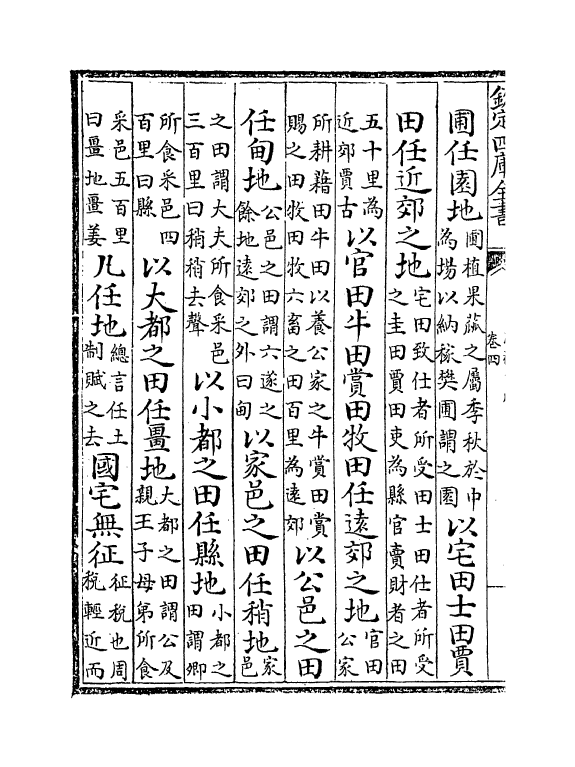 欽定四庫全書
卷四
圃任園地圃植果蓏之屬季秋於中為場以納稼樊圃謂之園以宅田士田賈
田任近郊之地宅田致仕者所受田士田仕者所受之圭田賈田吏為縣官賣財者之田
五十里為近郊賈古以官田牛田賞田牧田任遠郊之地官田公家
所耕藉田牛田以養公家之牛賞田賞賜之田牧田牧六畜之田百里為遠郊以公邑之田
任甸地公邑之田謂六遂之餘地遠郊之外曰甸以家邑之田任稍地家邑
之田謂大夫所食采邑三百里曰稍稍去聲以小都之田任縣地小都之田謂卿
所食采邑四百里曰縣以大都之田任畺地大都之田謂公及親王子母弟所食
采邑五百里曰畺地畺姜凡任地總言任土制賦之去國宅無征征稅也周稅輕近而